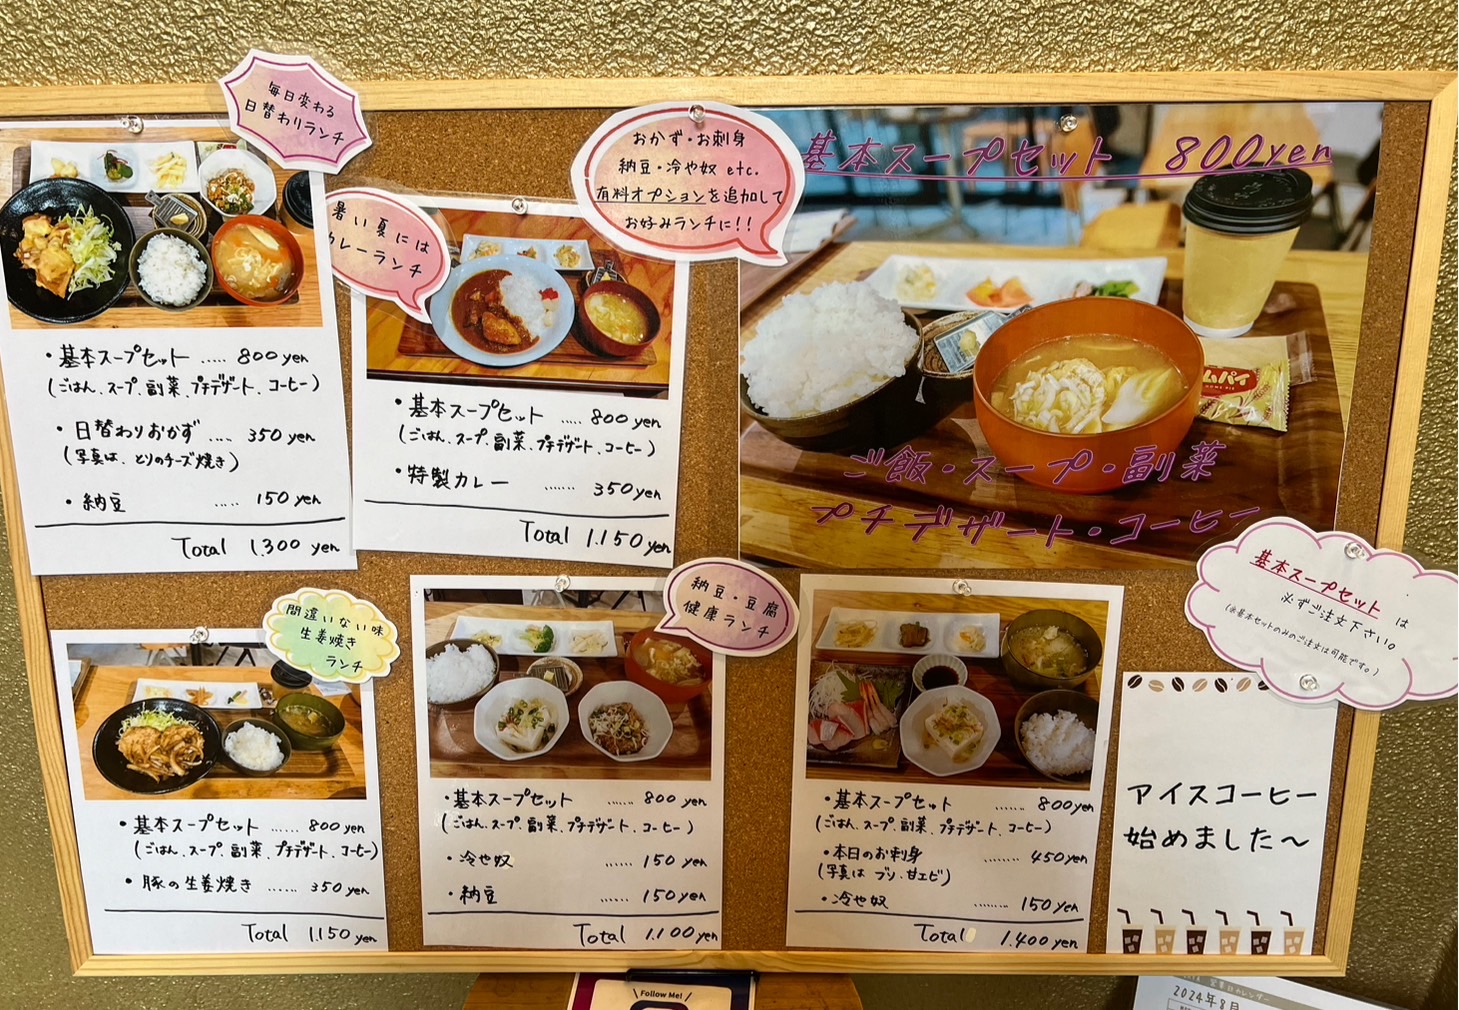 毎日変わる
日替わりランチ
・基本スープセット ..... 800yen
(ごはん、スープ、副菜、プチデザート、コーヒー)
・日替わりおかず .... 350yen
(写真は、とりのチーズ焼き)
・納豆 .... 150yen
Total 1.300 yen
暑い夏には
カレーランチ
・基本スープセット ..... 800yen
(ごはん、スープ、副菜、プチデザート、コーヒー)
・特製カレー ....... 350yen
Total 1.150yen
おかず・お刺身
納豆・冷や奴 etc.
有料オプションを追加して
お好みランチに!!
基本スープセット 800yen
ムパイ
ご飯・スープ・副菜
プチデザート・コーヒー
基本スープセット は
必ずご注文下さい。
(※基本セットのみのご注文は可能です。)
間違いない味
生姜焼き
ランチ
・基本スープセット ...... 800yen
(ごはん、スープ、副菜、プチデザート、コーヒー)
・豚の生姜焼き ...... 350yen
Total 1.150 yen
納豆・豆腐
健康ランチ
・基本スープセット ...... 800 yen
(ごはん、スープ、副菜、プチデザート、コーヒー)
・冷や奴 ...... 150 yen
・納豆 ...... 150yen
Total 1.100yen
・基本スープセット ....... 800yen
(ごはん、スープ、副菜、プチデザート、コーヒー)
・本日のお刺身 ........ 450yen
(写真は ブリ、甘エビ)
・冷や奴 ........ 150yen
Total 1.400yen
アイスコーヒー
始めました〜
Follow Me!
2024年8月